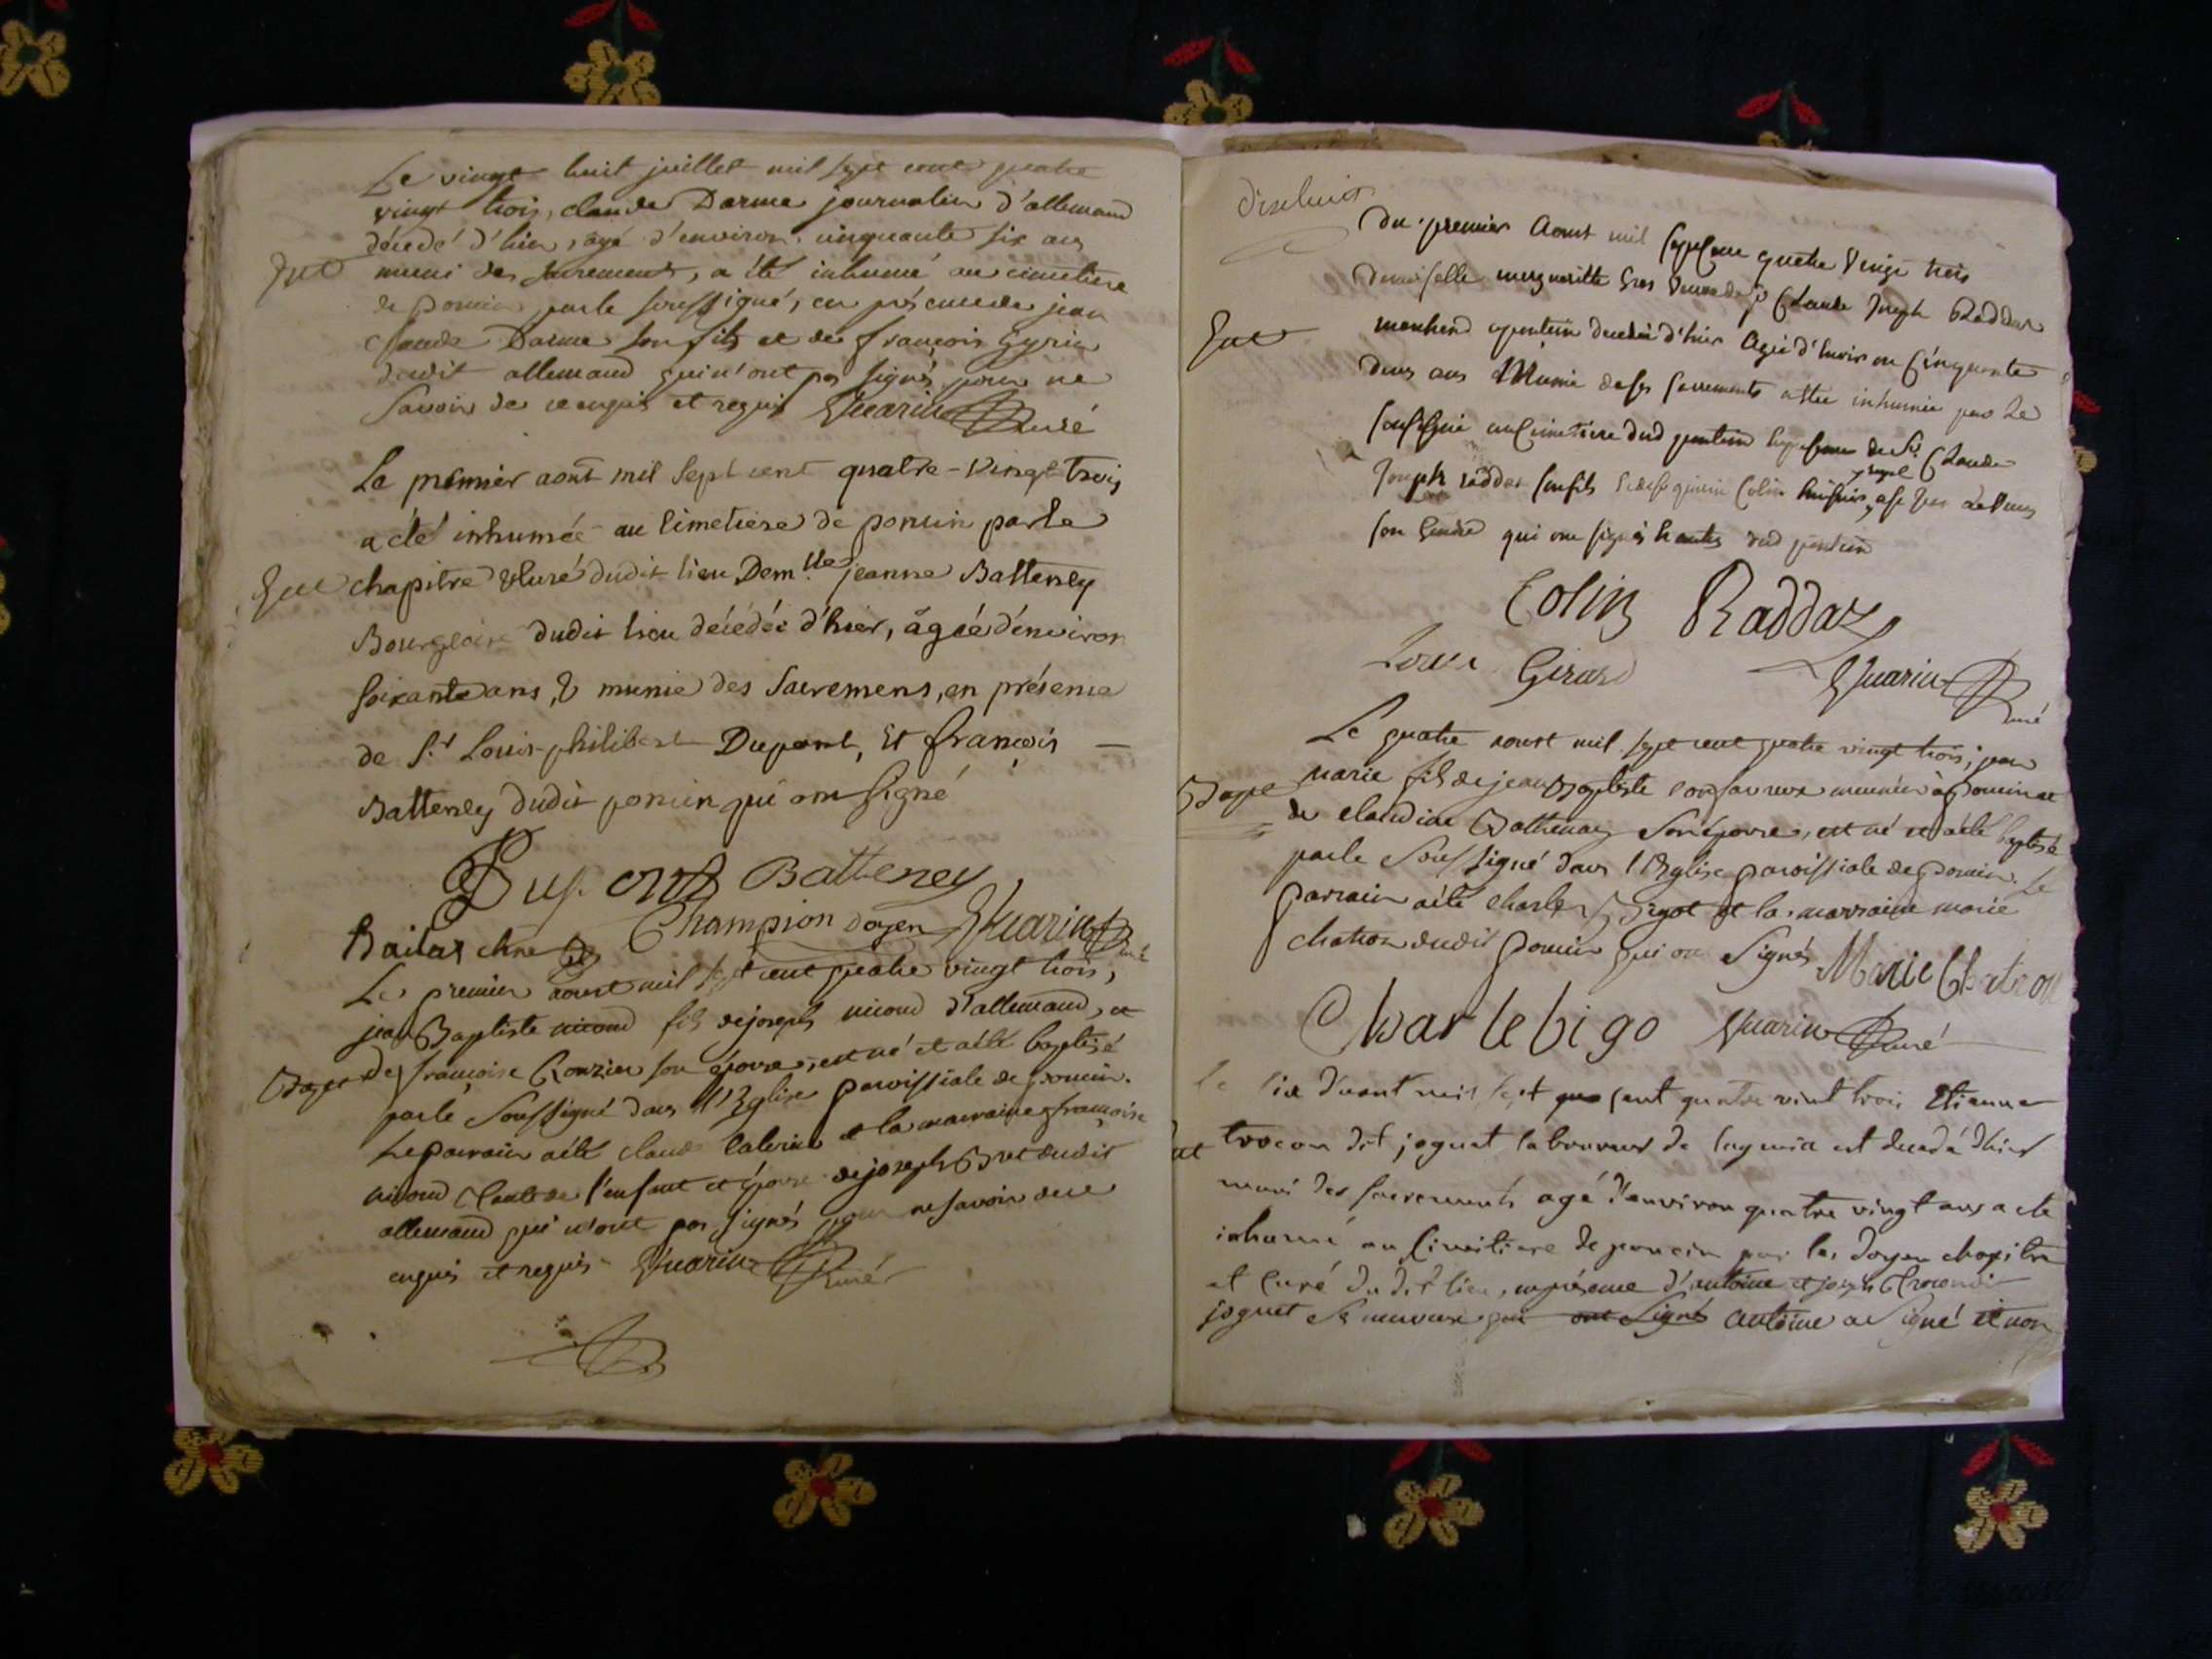 Le vingt huit juillet mil sept cent quatre
vingt trois, claude Darme journalier d'allemand
décédé d'hier, agé d'environ cinquante six ans
muni des sacremens, a été inhumé au cimetiere
de poncin par le soussigné, en présence de jean
claude Darme son fils et de françois
dudit allemand qui n'ont pas signés pour ne
savoir de ce enquis et requis Guarin curé
Le premier aoüt mil sept cent quatre-vingt trois
a été inhumée au cimetiere de poncin par le
chapitre & curé dudit lieu Dem.lle jeanne Batteney
Bourgeoise dudit lieu décédée d'hier, âgée d'environ
soixante ans, & munie des Sacremens, en présence
de S.r Louis-philibert Dupont, et françois
Batteney dudit poncin qui ont signé
Dupont Batteney
Champion doyen Guarin curé
Le premier aoust mil sept cent quatre vingt trois,
jean Baptiste nicoud fils de joseph nicoud d'allemand, et
Bapt de françoise son épouse, est né et a été baptisé
par le Soussigné dans l'Eglise paroissiale de poncin.
Le parrain a été claude et la marraine françoise
nicoud tante de l'enfant et épouse de joseph dudit
allemand qui n'ont pas signés pour ne savoir de ce
enquis et requis Guarin curé
dixhuit
Du premier Aoust mil sept cent quatre vingt trois
demoiselle margueritte veuve de Sr Claude Joseph Raddaz
marchand a poncin decedée d'hier Agée d'environ Cinquante
deux ans Munie de ses sacrements a été inhumée par Le
soussigné au Cimetiere dud poncin en presence de Sr. Claude
Joseph raddaz son fils Colin
son gendre qui ont signés dud poncin
Colin Raddaz
Girard
Guarin curé
Le quatre aoust mil sept cent quatre vingt trois, jean
Bapt marie fils de jean Baptiste meunier à poncin et
de claudine Bathenay Son épouse, est né et a été baptisé
par le Soussigné dans l'Eglise paroissiale de poncin. Le
parrain a été charles Bigot et la marraine marie
chatron dudit poncin qui ont Signés Marie Chatron
Charle bigo Guarin curé
le six d'aout mil sept cent quatre vint trois Etienne
trocon dit joguet laboureur de est decedé d'hier
muni des sacrements agé d'environ quatre vingt ans a ete
inhumé au Cimitiere de poncin par les doyen chapitre
et Curé du dit lieu, en présence d'antoine et joseph trocon dit
joguet Ses neveux qui ont Signés antoine a Signé et non